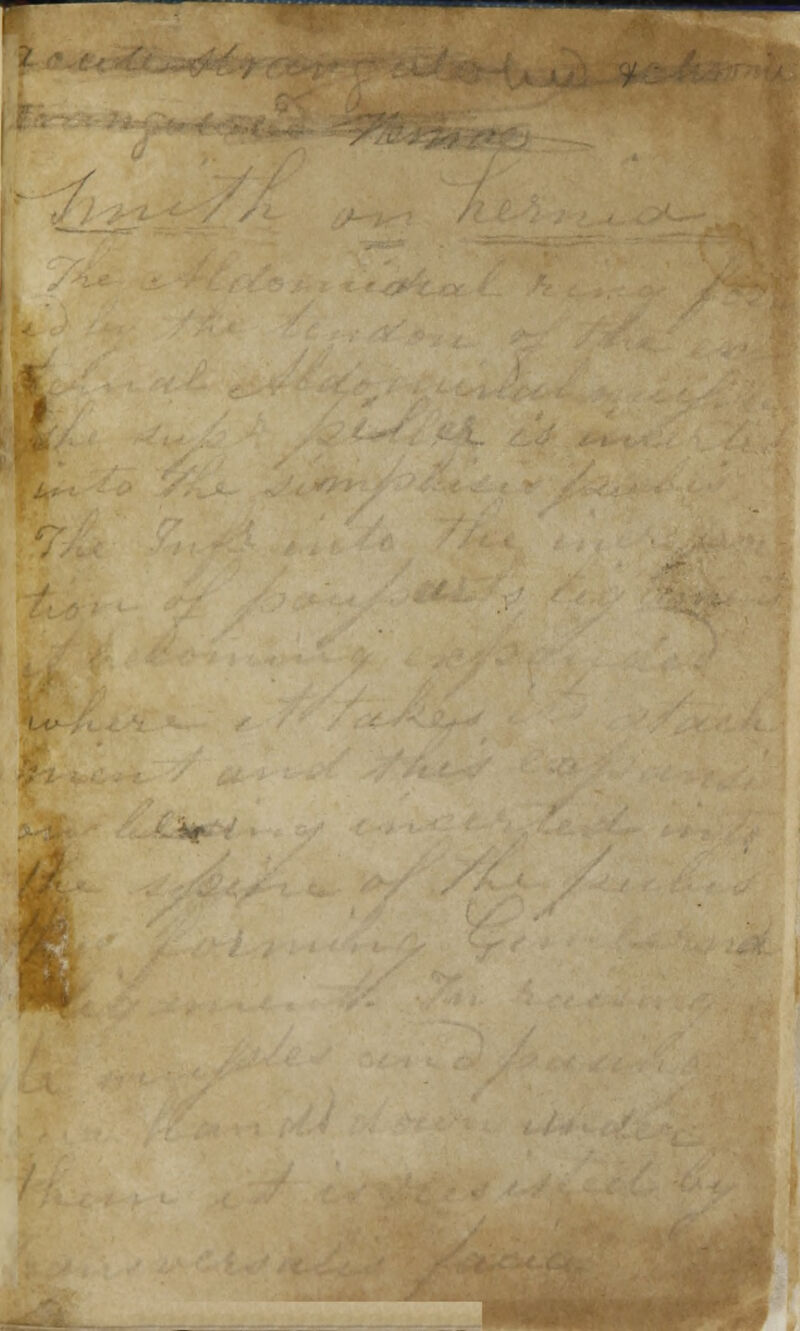 acute strangulated & chronic
strangulated Hernia
Smith on hernia
The Abdominal ring form
ed by the tendon of the ex
ternal Abdominal musples
the supr piller is incerted
into the simphisis pubis
The Infr into the
tion of pouparts ligament
it becoming expanded
where it takes its atach
ment and this expansi
on being incerted into
the spine of the pubis
thus forming Gimbernat
ligament. In raising
the musples and pasing
our hands down under
them it is resisted by
transversalis facia